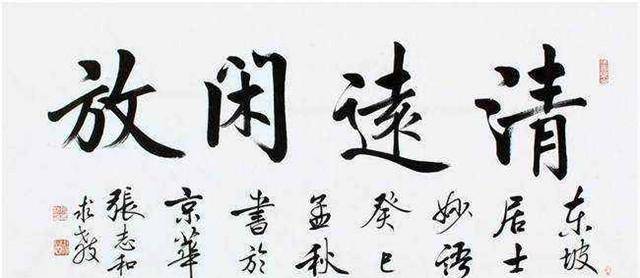 清遠闲放
东坡
居士
妙語
癸巳
孟秋
書於
京華
張志和
求教